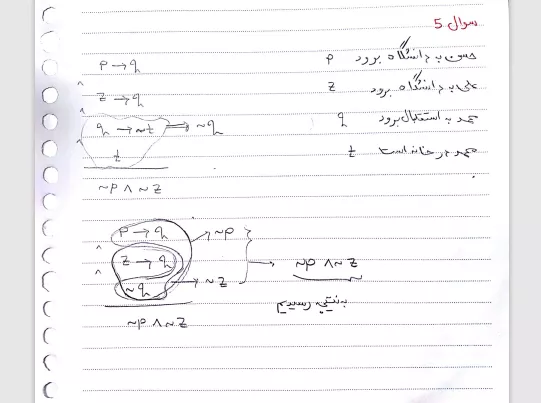 سوال 5
حسن به دانشگاه برود p
علی به دانشگاه برود z
محمد به استقبال برود q
محمد در خانه است t
p → q
∧
z → q
∧
q → ~t ⟹ ~q
∧
t
~p ∧ ~z
p → q → ~p
∧
z → q
∧
~q → ~z
→ ~p ∧ ~z
~p ∧ ~z
به نتیجه رسیدیم